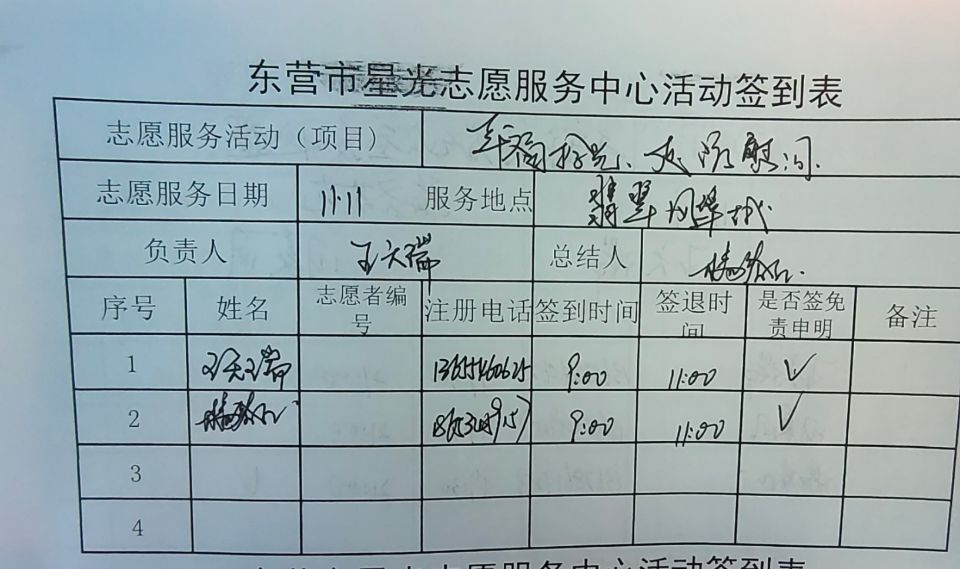 东营市星光志愿服务中心活动签到表
志愿服务活动（项目）
志愿服务日期 11.11 服务地点 翡翠
负责人 王天瑞 总结人
序号 姓名 志愿者编号 注册电话 签到时间 签退时间 是否签免责申明 备注
1 王天瑞 13655460625 9:00 11:00 ✓
2 9:00 11:00 ✓
3
4
东营市星光志愿服务中心活动签到表